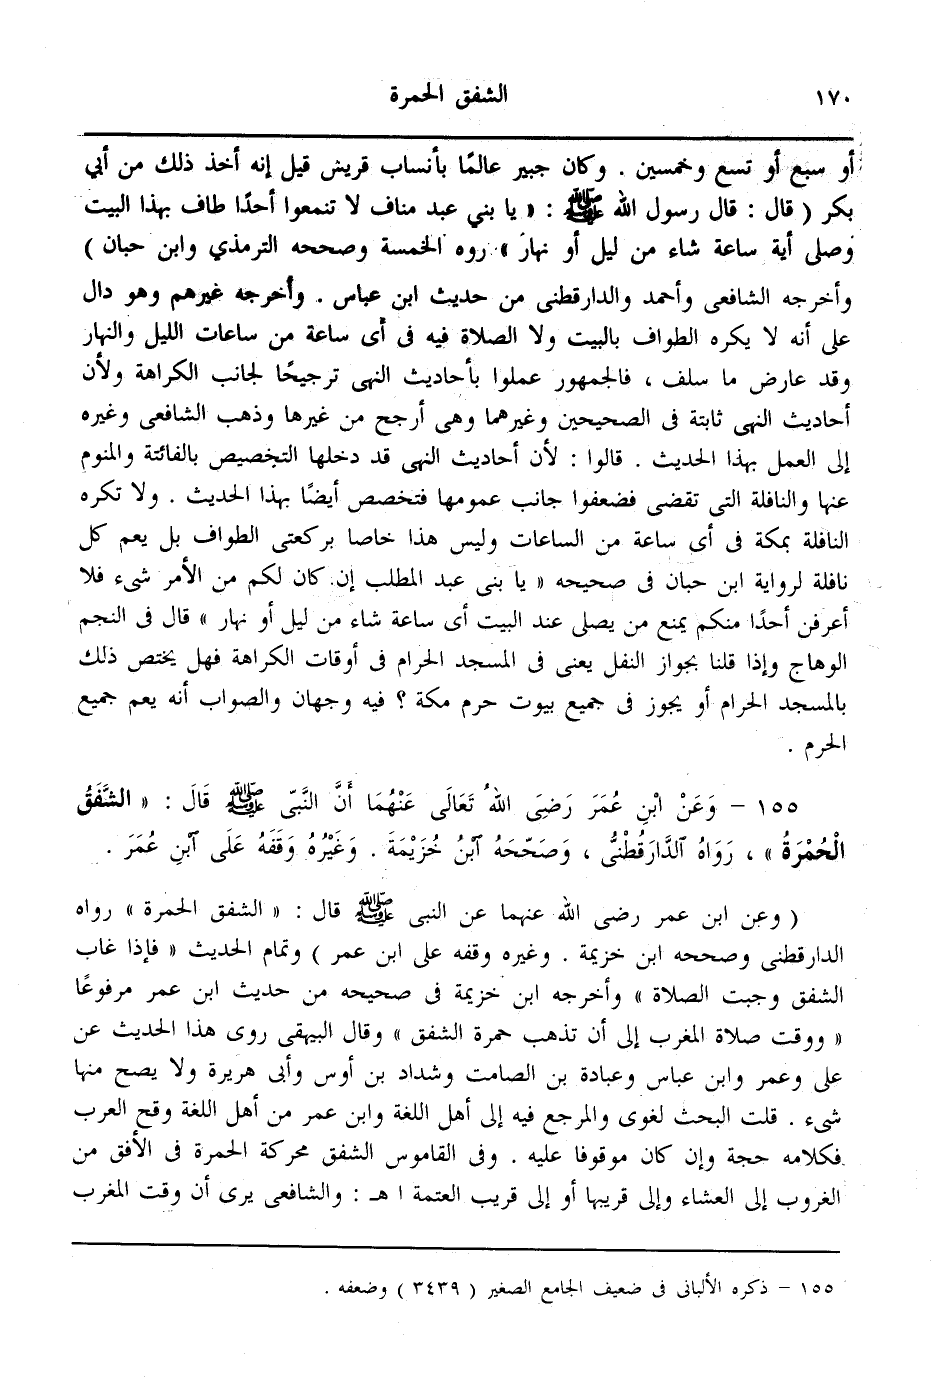 ١٧٠
الشفق الحمرة
أو سبع أو تسع وخمسين . وكان جبير عالمًا بأنساب قريش قيل إنه أخذ ذلك من أبي
بكر ( قال : قال رسول الله ﷺ : « يا بني عبد مناف لا تنمعوا أحدًا طاف بهذا البيت
وصلى أية ساعة شاء من ليل أو نهار » روه الخمسة وصححه الترمذي وابن حبان )
وأخرجه الشافعى وأحمد والدارقطنى من حديث ابن عباس . وأخرجه غيرهم وهو دال
على أنه لا يكره الطواف بالبيت ولا الصلاة فيه فى أى ساعة من ساعات الليل والنهار
وقد عارض ما سلف ، فالجمهور عملوا بأحاديث النهى ترجيحًا لجانب الكراهة ولأن
أحاديث النهى ثابتة فى الصحيحين وغيرهما وهى أرجح من غيرها وذهب الشافعى وغيره
إلى العمل بهذا الحديث . قالوا : لأن أحاديث النهى قد دخلها التخصيص بالفائتة والمنوم
عنها والنافلة التى تقضى فضعفوا جانب عمومها فتخصص أيضًا بهذا الحديث . ولا تكره
النافلة بمكة فى أى ساعة من الساعات وليس هذا خاصا بركعتى الطواف بل يعم كل
نافلة لرواية ابن حبان فى صحيحه « يا بنى عبد المطلب إن كان لكم من الأمر شىء فلا
أعرفن أحدًا منكم يمنع من يصلى عند البيت أى ساعة شاء من ليل أو نهار » قال فى النجم
الوهاج وإذا قلنا بجواز النفل يعنى فى المسجد الحرام فى أوقات الكراهة فهل يختص ذلك
بالمسجد الحرام أو يجوز فى جميع بيوت حرم مكة ؟ فيه وجهان والصواب أنه يعم جميع
الحرم .
١٥٥ - وَعَنْ ابْنِ عُمَرَ رَضِىَ اللهُ تَعَالَى عَنْهُمَا أَنَّ النَّبِىّ ﷺ قَالَ : « الشَّفَقُ
الْحُمْرَةُ » ، رَوَاهُ الدَّارَقُطْنُى ، وَصَحّحَهُ ابْنُ خُزَيْمَةَ . وَغَيْرُهُ وَقَفَهُ عَلَى ابْنِ عُمَرَ .
( وعن ابن عمر رضى الله عنهما عن النبى ﷺ قال : « الشفق الحمرة » رواه
الدارقطنى وصححه ابن خزيمة . وغيره وقفه على ابن عمر ) وتمام الحديث « فإذا غاب
الشفق وجبت الصلاة » وأخرجه ابن خزيمة فى صحيحه من حديث ابن عمر مرفوعًا
« ووقت صلاة المغرب إلى أن تذهب حمرة الشفق » وقال البيهقى روى هذا الحديث عن
على وعمر وابن عباس وعبادة بن الصامت وشداد بن أوس وأبى هريرة ولا يصح منها
شىء . قلت البحث لغوى والمرجع فيه إلى أهل اللغة وابن عمر من أهل اللغة وقح العرب
فكلامه حجة وإن كان موقوفا عليه . وفى القاموس الشفق محركة الحمرة فى الأفق من
الغروب إلى العشاء وإلى قريبها أو إلى قريب العتمة ا هـ : والشافعى يرى أن وقت المغرب
١٥٥ - ذكره الألبانى فى ضعيف الجامع الصغير ( ٣٤٣٩ ) وضعفه .